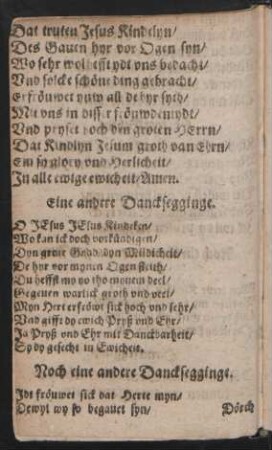 Dat truten Jesus Kindelyn/
Des Gauen hyr vor Ogen syn/
Wo sehr wol hefft ydt vns bedacht/
Vnd solcke schöne ding gebracht/
Erfröuwet yuw all de hyr syth/
Mit vns in disser fröuwdentydt/
Vnd pryset doch den groten HErrn/
Dat Kindlyn Jesum groth van Ehrn/
Em sy glory vnd Herlicheit/
In alle ewige ewicheit/Amen.
Eine andere Dancksegginge.
O JEsus JEsus Kindeken/
Wo kan ick doch vorkündigen/
Dyn grote Gnad vnd Mildicheit/
De hyr vor mynen Ogen steith/
Du hefft my yo tho mynen deel/
Gegeuen warlick groth vnd veel/
Myn Hert erfröwt sick hoch vnd sehr/
Vnd gifft dy ewich Pryß vnd Ehr/
Ja Pryß vnd Ehr mit Danckbarheit/
Sy dy gesecht in Ewicheit.
Noch eine andere Dancksegginge.
Idt fröuwet sick dat Herte myn/
Dewyl wy so begauet syn/
Dörch